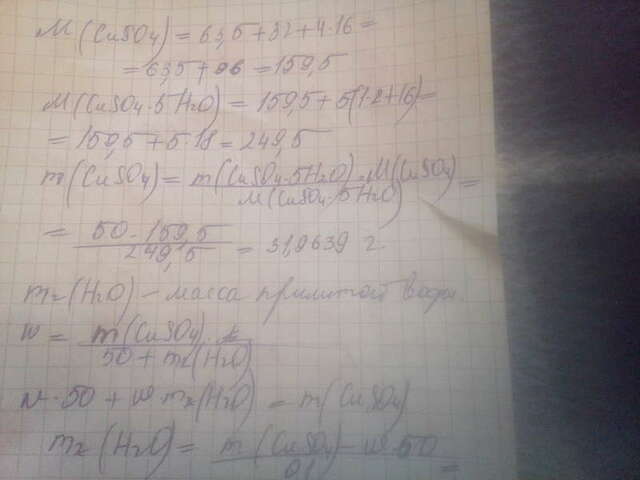 M(CuSO₄) = 63,5 + 32 + 4·16 =
= 63,5 + 96 = 159,5
M(CuSO₄·5H₂O) = 159,5 + 5(1·2+16) =
= 159,5 + 5·18 = 249,5
m(CuSO₄) = m(CuSO₄·5H₂O)·M(CuSO₄) =
M(CuSO₄·5H₂O)
= 50·159,5 = 31,9639 г.
249,5
m₂(H₂O) – масса прилитой воды.
W = m(CuSO₄)
50 + m₂(H₂O)
W·50 + W·m₂(H₂O) = m(CuSO₄)
m₂(H₂O) = m(CuSO₄) – W·50 =
0,1